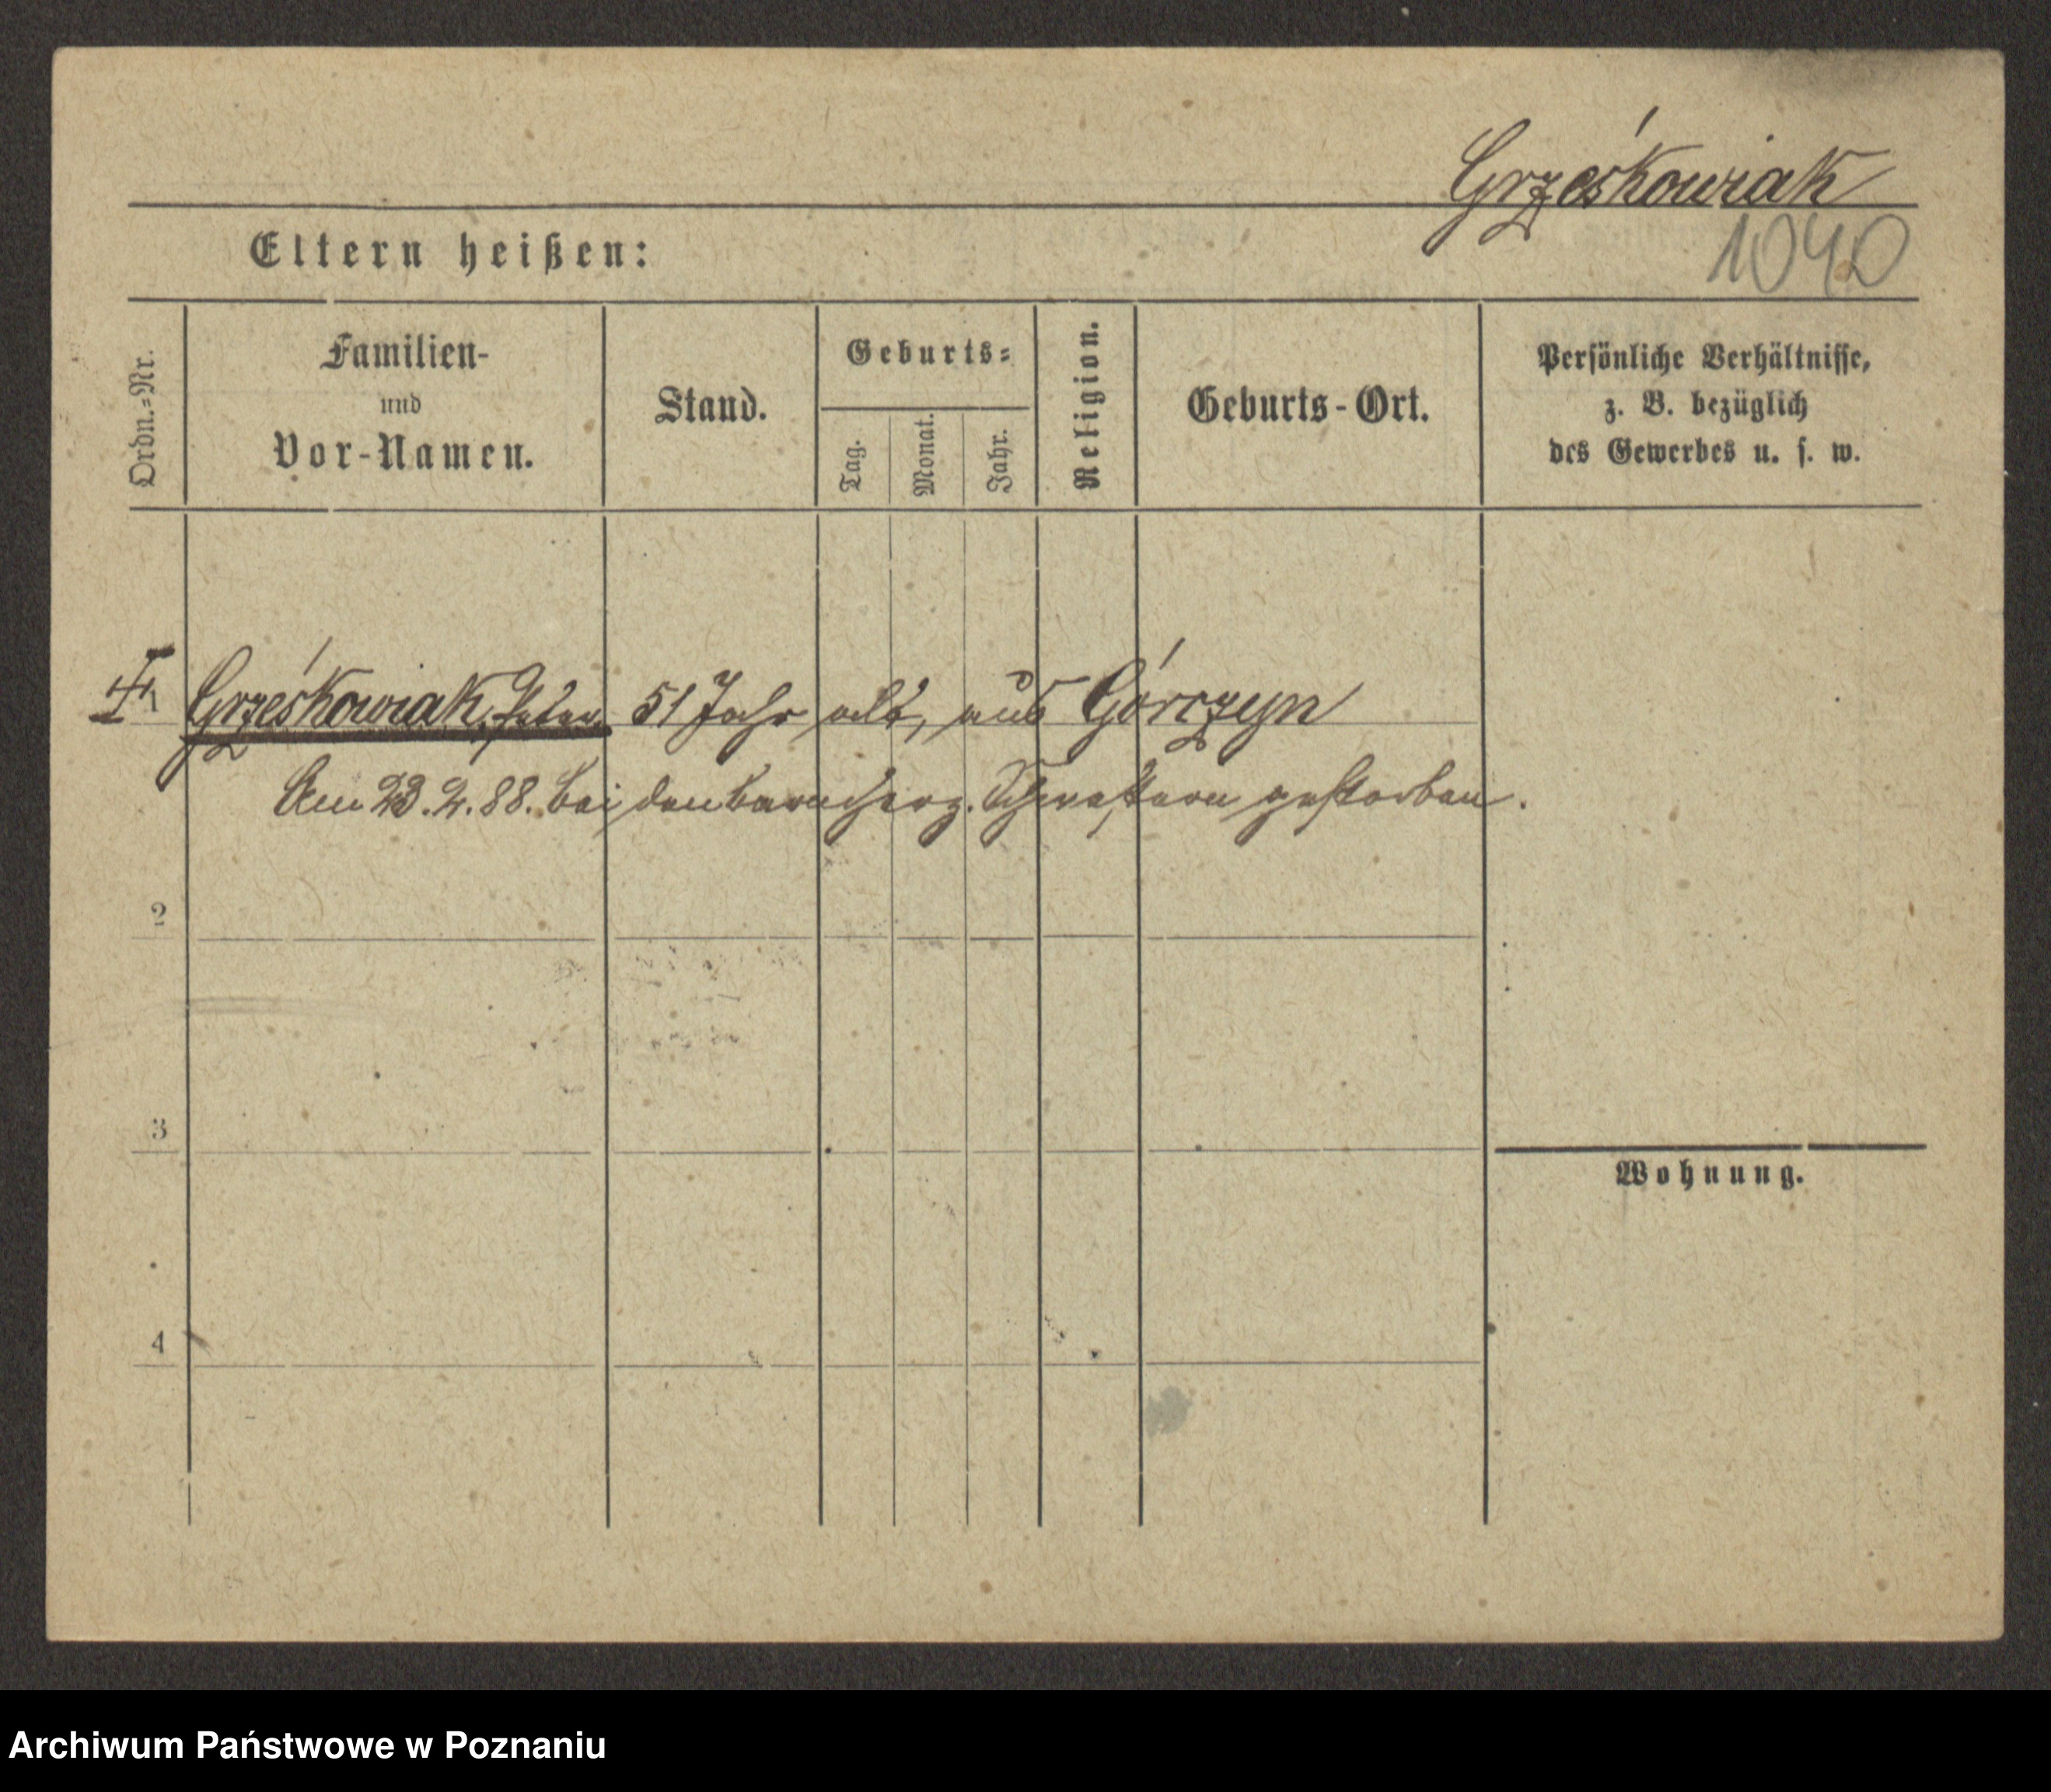 Grześkowiak
1040
Eltern heißen:
Ordn.-Nr.
Familien-
und
Vor-Namen.
Stand.
Geburts-
Tag.
Monat.
Jahr.
Religion.
Geburts-Ort.
Persönliche Verhältnisse,
z. B. bezüglich
des Gewerbes u. s. w.
1 Grześkowiak, Peter, 51 Jahr alt, aus Górczyn
Am 23. 2. 88. bei den barmherz. Schwestern gestorben.
2
3
Wohnung.
4
Archiwum Państwowe w Poznaniu